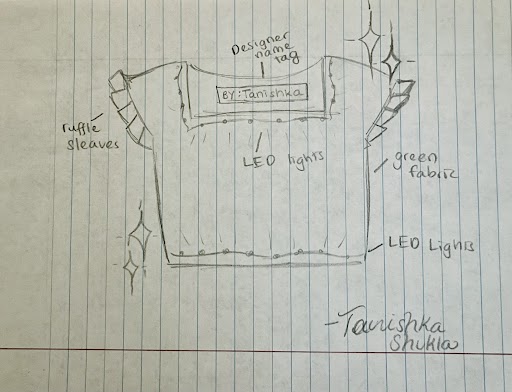 Designer
name
tag
BY: Tanishka
ruffle
sleaves
LED lights
green
fabric
LED Lights
-Tanishka
Shukla